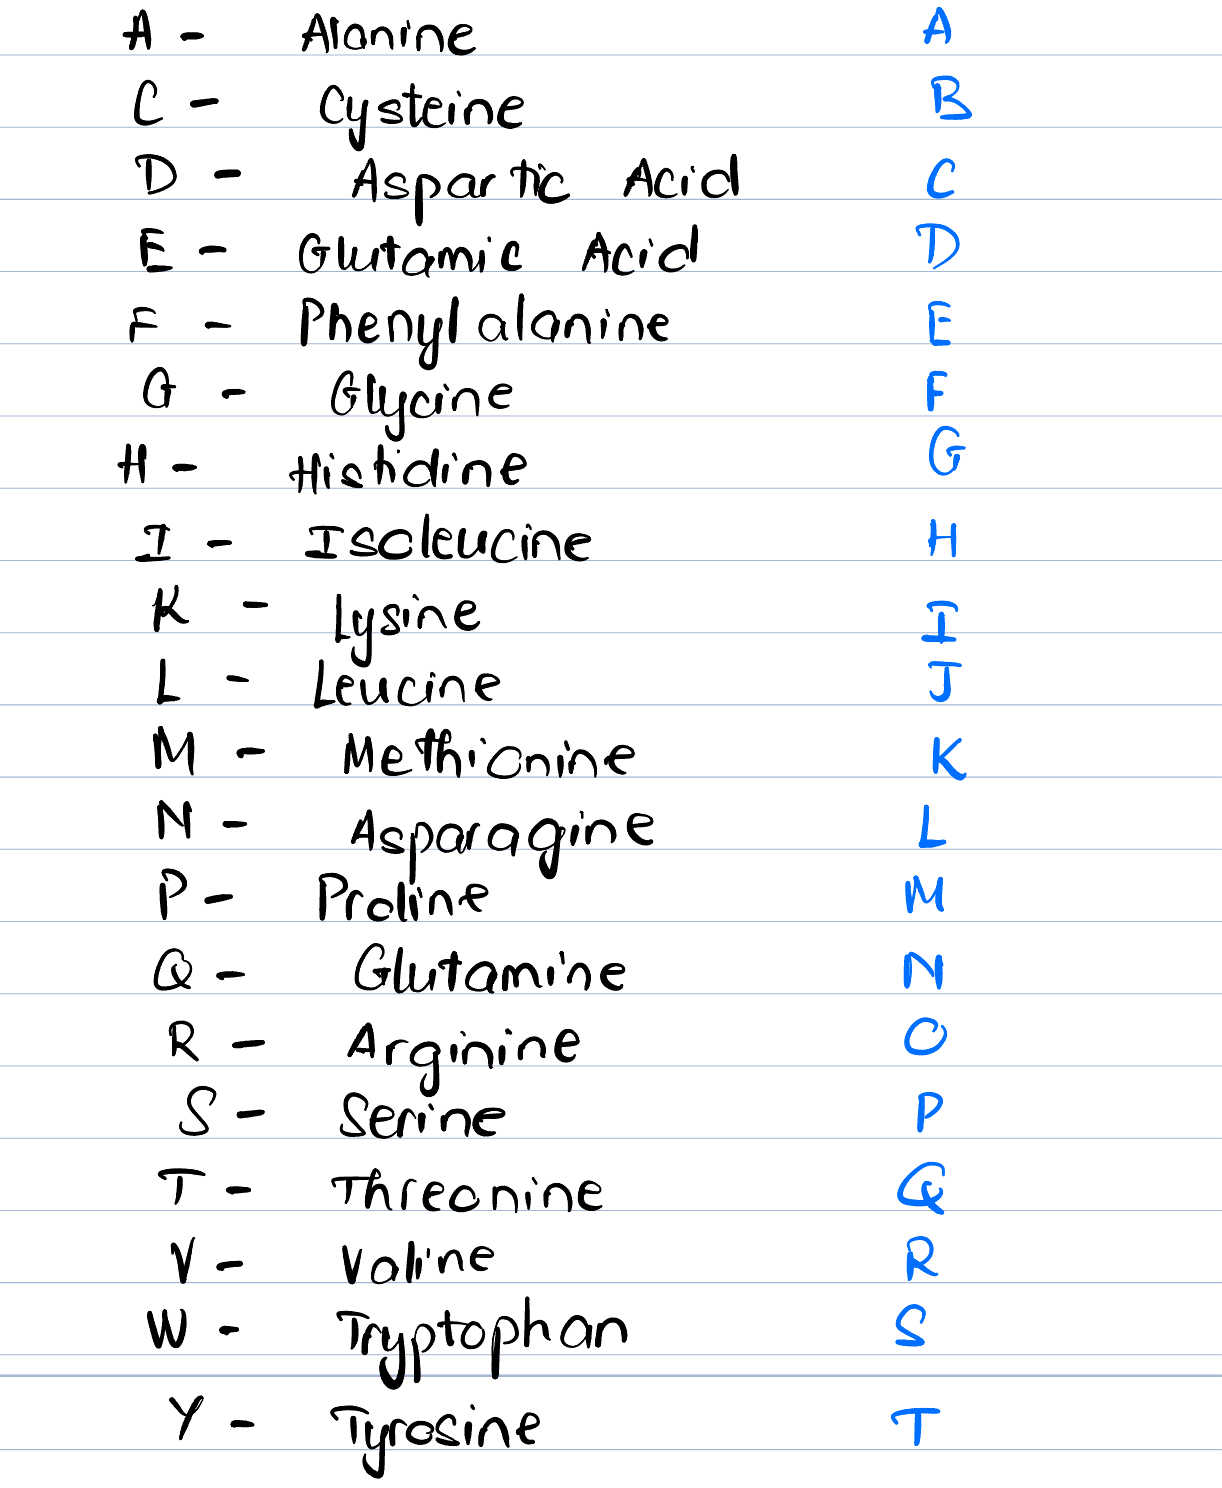 A - Alanine A
C - Cysteine B
D - Aspartic Acid C
E - Glutamic Acid D
F - Phenylalanine E
G - Glycine F
H - Histidine G
I - Isoleucine H
K - Lysine I
L - Leucine J
M - Methionine K
N - Asparagine L
P - Proline M
Q - Glutamine N
R - Arginine O
S - Serine P
T - Threonine Q
V - Valine R
W - Tryptophan S
Y - Tyrosine T